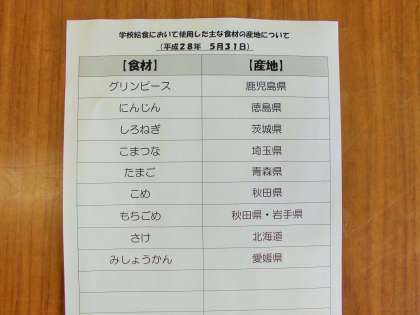 学校給食において使用した主な食材の産地について
（平成２８年　５月３１日）
【食材】　【産地】
グリンピース　鹿児島県
にんじん　徳島県
しろねぎ　茨城県
こまつな　埼玉県
たまご　青森県
こめ　秋田県
もちごめ　秋田県・岩手県
さけ　北海道
みしょうかん　愛媛県